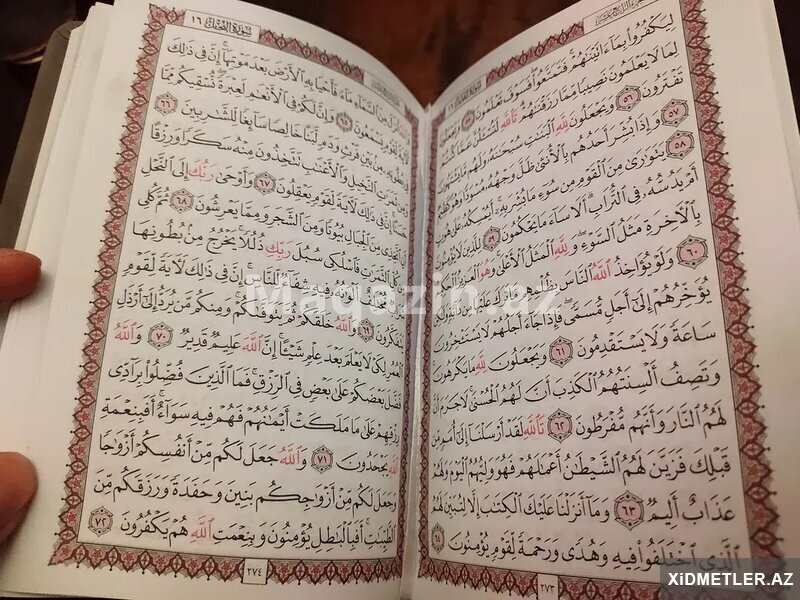 لِيَكْفُرُوا۟ بِمَآ ءَاتَيْنَٰهُمْ ۚ فَتَمَتَّعُوا۟ فَسَوْفَ تَعْلَمُونَ ٥٥ وَيَجْعَلُونَ
لِمَا لَا يَعْلَمُونَ نَصِيبًا مِّمَّا رَزَقْنَٰهُمْ ۗ تَٱللَّهِ لَتُسْـَٔلُنَّ عَمَّا كُنتُمْ
تَفْتَرُونَ ٥٦ وَيَجْعَلُونَ لِلَّهِ ٱلْبَنَٰتِ سُبْحَٰنَهُۥ ۙ وَلَهُم مَّا يَشْتَهُونَ
٥٧ وَإِذَا بُشِّرَ أَحَدُهُم بِٱلْأُنثَىٰ ظَلَّ وَجْهُهُۥ مُسْوَدًّا وَهُوَ كَظِيمٌ
٥٨ يَتَوَٰرَىٰ مِنَ ٱلْقَوْمِ مِن سُوٓءِ مَا بُشِّرَ بِهِۦٓ ۚ أَيُمْسِكُهُۥ عَلَىٰ هُونٍ
أَمْ يَدُسُّهُۥ فِى ٱلتُّرَابِ ۗ أَلَا سَآءَ مَا يَحْكُمُونَ ٥٩ لِلَّذِينَ لَا يُؤْمِنُونَ
بِٱلْءَاخِرَةِ مَثَلُ ٱلسَّوْءِ ۖ وَلِلَّهِ ٱلْمَثَلُ ٱلْأَعْلَىٰ ۚ وَهُوَ ٱلْعَزِيزُ ٱلْحَكِيمُ
٦٠ وَلَوْ يُؤَاخِذُ ٱللَّهُ ٱلنَّاسَ بِظُلْمِهِم مَّا تَرَكَ عَلَيْهَا مِن دَآبَّةٍ وَلَٰكِن
يُؤَخِّرُهُمْ إِلَىٰٓ أَجَلٍ مُّسَمًّى ۖ فَإِذَا جَآءَ أَجَلُهُمْ لَا يَسْتَـْٔخِرُونَ
سَاعَةً ۖ وَلَا يَسْتَقْدِمُونَ ٦١ وَيَجْعَلُونَ لِلَّهِ مَا يَكْرَهُونَ
وَتَصِفُ أَلْسِنَتُهُمُ ٱلْكَذِبَ أَنَّ لَهُمُ ٱلْحُسْنَىٰ ۖ لَا جَرَمَ أَنَّ
لَهُمُ ٱلنَّارَ وَأَنَّهُم مُّفْرَطُونَ ٦٢ تَٱللَّهِ لَقَدْ أَرْسَلْنَآ إِلَىٰٓ أُمَمٍ مِّن
قَبْلِكَ فَزَيَّنَ لَهُمُ ٱلشَّيْطَٰنُ أَعْمَٰلَهُمْ فَهُوَ وَلِيُّهُمُ ٱلْيَوْمَ وَلَهُمْ
عَذَابٌ أَلِيمٌ ٦٣ وَمَآ أَنزَلْنَا عَلَيْكَ ٱلْكِتَٰبَ إِلَّا لِتُبَيِّنَ لَهُمُ
ٱلَّذِى ٱخْتَلَفُوا۟ فِيهِ ۙ وَهُدًى وَرَحْمَةً لِّقَوْمٍ يُؤْمِنُونَ ٦٤
٢٧٣
سُورَةُ النَّحْلِ ١٦
وَٱللَّهُ أَنزَلَ مِنَ ٱلسَّمَآءِ مَآءً فَأَحْيَا بِهِ ٱلْأَرْضَ بَعْدَ مَوْتِهَآ ۚ إِنَّ فِى ذَٰلِكَ
لَءَايَةً لِّقَوْمٍ يَسْمَعُونَ ٦٥ وَإِنَّ لَكُمْ فِى ٱلْأَنْعَٰمِ لَعِبْرَةً ۖ نُّسْقِيكُم مِّمَّا
فِى بُطُونِهِۦ مِنۢ بَيْنِ فَرْثٍ وَدَمٍ لَّبَنًا خَالِصًا سَآئِغًا لِّلشَّٰرِبِينَ ٦٦
وَمِن ثَمَرَٰتِ ٱلنَّخِيلِ وَٱلْأَعْنَٰبِ تَتَّخِذُونَ مِنْهُ سَكَرًا وَرِزْقًا
حَسَنًا ۗ إِنَّ فِى ذَٰلِكَ لَءَايَةً لِّقَوْمٍ يَعْقِلُونَ ٦٧ وَأَوْحَىٰ رَبُّكَ إِلَى ٱلنَّحْلِ
أَنِ ٱتَّخِذِى مِنَ ٱلْجِبَالِ بُيُوتًا وَمِنَ ٱلشَّجَرِ وَمِمَّا يَعْرِشُونَ ٦٨ ثُمَّ كُلِى
مِن كُلِّ ٱلثَّمَرَٰتِ فَٱسْلُكِى سُبُلَ رَبِّكِ ذُلُلًا ۚ يَخْرُجُ مِنۢ بُطُونِهَا
شَرَابٌ مُّخْتَلِفٌ أَلْوَٰنُهُۥ فِيهِ شِفَآءٌ لِّلنَّاسِ ۗ إِنَّ فِى ذَٰلِكَ لَءَايَةً لِّقَوْمٍ
يَتَفَكَّرُونَ ٦٩ وَٱللَّهُ خَلَقَكُمْ ثُمَّ يَتَوَفَّىٰكُمْ ۚ وَمِنكُم مَّن يُرَدُّ إِلَىٰٓ أَرْذَلِ
ٱلْعُمُرِ لِكَىْ لَا يَعْلَمَ بَعْدَ عِلْمٍ شَيْـًٔا ۚ إِنَّ ٱللَّهَ عَلِيمٌ قَدِيرٌ ٧٠ وَٱللَّهُ
فَضَّلَ بَعْضَكُمْ عَلَىٰ بَعْضٍ فِى ٱلرِّزْقِ ۚ فَمَا ٱلَّذِينَ فُضِّلُوا۟ بِرَآدِّى
رِزْقِهِمْ عَلَىٰ مَا مَلَكَتْ أَيْمَٰنُهُمْ فَهُمْ فِيهِ سَوَآءٌ ۚ أَفَبِنِعْمَةِ
ٱللَّهِ يَجْحَدُونَ ٧١ وَٱللَّهُ جَعَلَ لَكُم مِّنْ أَنفُسِكُمْ أَزْوَٰجًا
وَجَعَلَ لَكُم مِّنْ أَزْوَٰجِكُم بَنِينَ وَحَفَدَةً وَرَزَقَكُم مِّنَ
ٱلطَّيِّبَٰتِ ۚ أَفَبِٱلْبَٰطِلِ يُؤْمِنُونَ وَبِنِعْمَتِ ٱللَّهِ هُمْ يَكْفُرُونَ ٧٢
٢٧٤
Magazin.az
XiDMETLER.AZ